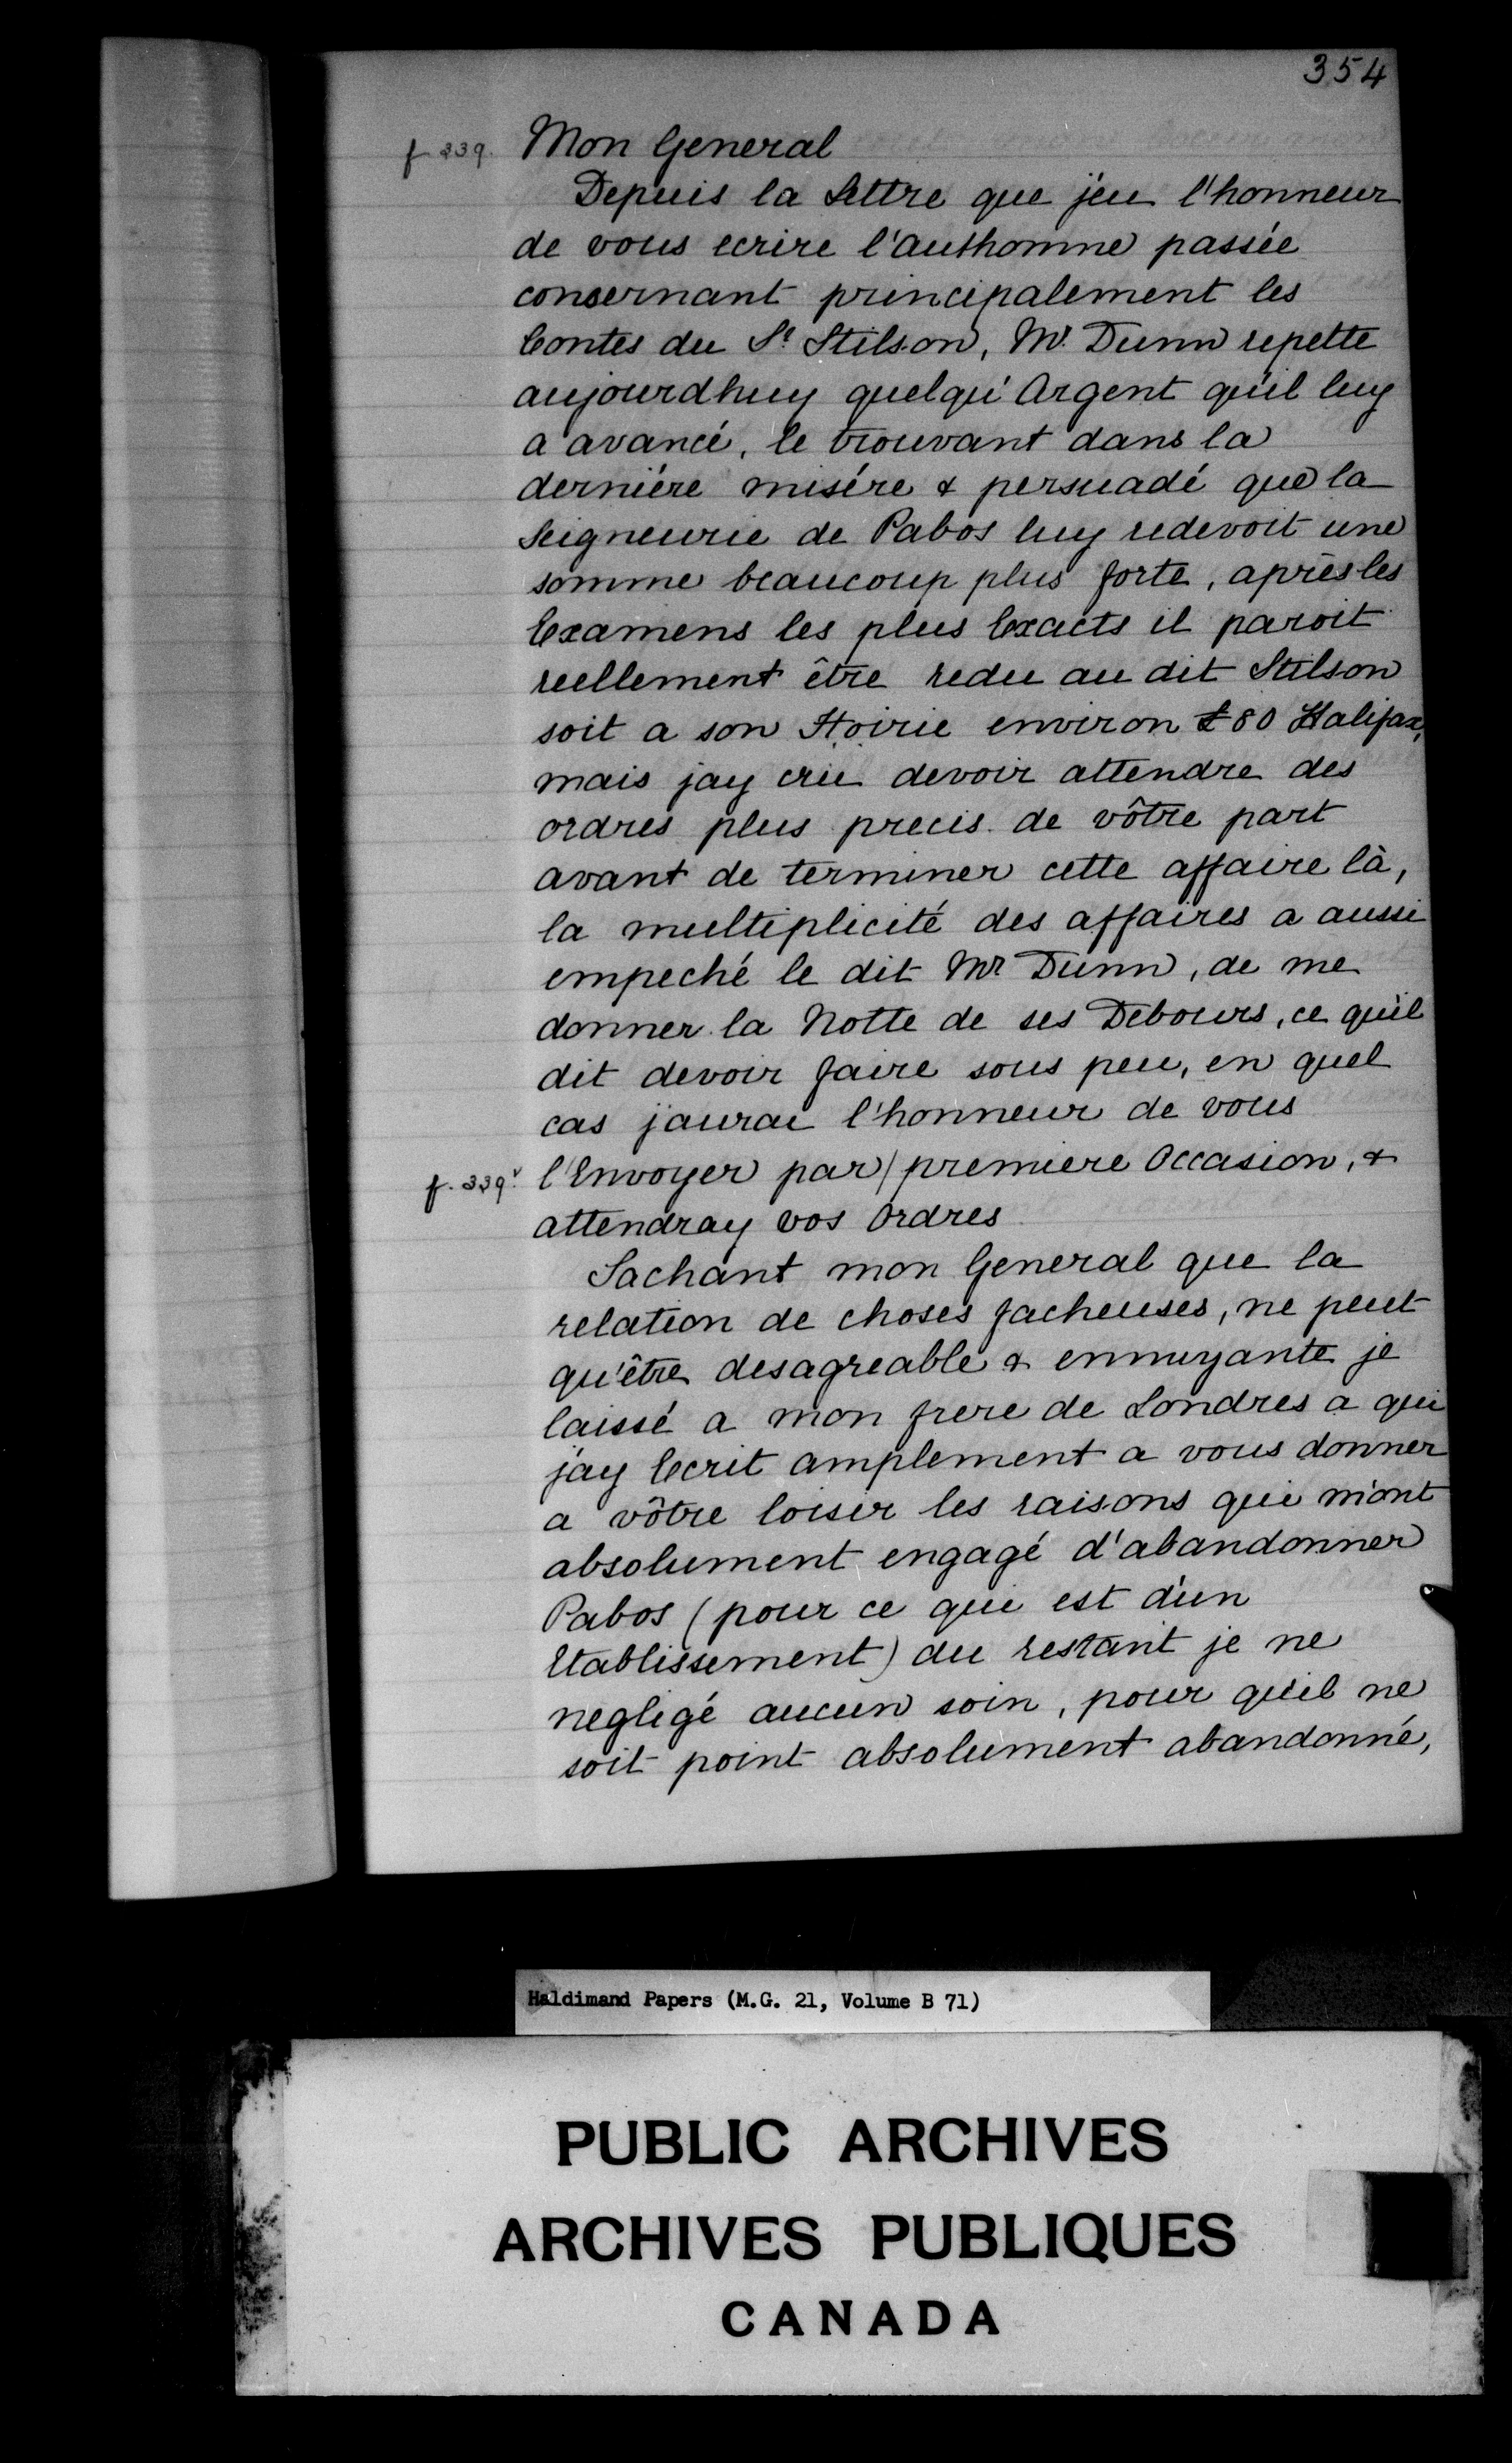 354
f 339. Mon General
Depuis la Lettre que j'eu l'honneur
de vous ecrire l'authomne passée
consernant principalement les
Contes du Sr Stilson, Mr. Dunn repette
aujourdhuy quelqu'Argent qu'il luy
a avancé, le trouvant dans la
derniére misére & persuadé que la
Seigneurie de Pabos luy redevoit une
somme beaucoup plus forte, après les
Examens les plus Exacts il paroit
reellement être redu au dit Stilson
soit a son Hoirie environ £80 Halifax,
mais jay crû devoir attendre des
ordres plus precis de vôtre part
avant de terminer cette affaire là,
la multiplicité des affaires a aussi
empeché le dit Mr Dunn, de me
donner la Notte de ses Debours, ce qu'il
dit devoir faire sous peu, en quel
cas jaurai l'honneur de vous
f. 339v. l'Envoyer par/premiere Occasion, &
attendray vos Ordres
Sachant mon General que la
relation de choses facheuses, ne peut
qu'être desagreable & ennuyante je
laissé a mon frere de Londres a qui
j'ay Ecrit amplement a vous donner
a vôtre loisir les raisons qui m'ont
absolument engagé d'abandonner
Pabos (pour ce qui est d'un
Etablissement) du restant je ne
negligé aucun soin, pour qu'il ne
soit point absolument abandonné,
Haldimand Papers (M.G. 21, Volume B 71)
PUBLIC ARCHIVES
ARCHIVES PUBLIQUES
CANADA